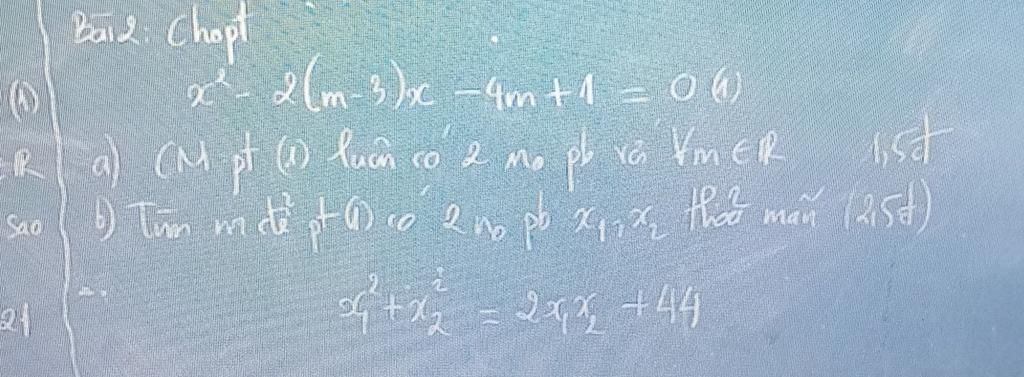 Bài 2: Cho pt
(1)
x² - 2(m-3)x - 4m + 1 = 0 (1)
R
a) CM pt (1) luôn có 2 no pb với ∀m ∈ R 1,5đ
sao
b) Tìm m để pt (1) có 2 no pb x₁, x₂ thoả mãn (2,5đ)
21
x₁² + x₂² = 2x₁x₂ + 44